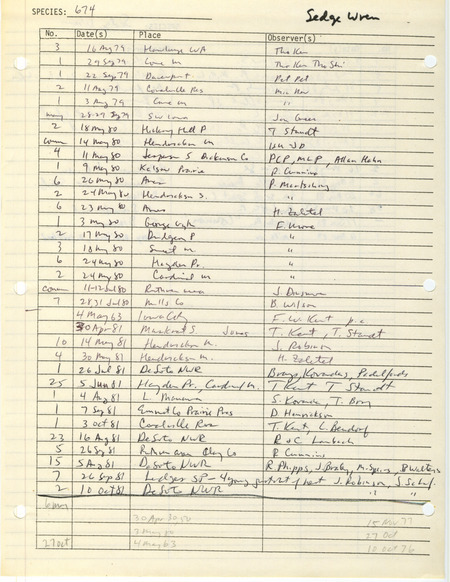 SPECIES: 674 Sedge Wren
No. Date(s) Place Observer(s)
3 16 Aug 79
1 29 Sep 79 Cone m
1 22 Sep 79 Davenport Pet Pet
2 11 Aug 79 Coralville Res
1 3 Aug 79 Cone m "
many 28-29 Sep 79 SW Iowa
2 18 May 80 Hickory Hill P T Staudt
com 14 May 80 Hendrickson m
4 11 May 80 Jemerson S Dickinson Co PCP, MLP, Allan Hahn
1 9 May 80 Kalsow Prairie R. Cummins
6 26 May 80 Ames P. Martsching
2 24 May 80 Hendrickson S. "
6 23 May 80 Ames H. Zaletel
1 3 May 80 George Wyth F. Moore
2 17 May 80 Dudgeon P "
3 18 May 80 Sweet m "
6 24 May 80 Hayden Pr. "
2 24 May 80 Cardinal m "
com 11-12 Jul 80 J. Dinsmore
7 28-31 Jul 80 Mills Co B. Wilson
4 May 63 Iowa City F. W. Kent p.c.
30 Apr 81 Jones T. Kent, T. Staudt
10 14 May 81 Hendrickson m. J. Robinson
4 30 May 81 Hendrickson m. H. Zaletel
1 26 Jul 81 DeSoto NWR Brays, Kovandas, Padelfords
25 5 Jun 81 Hayden Pr, Cardinal m. T Kent T Staudt
1 4 Aug 81 L. Manawa S. Kovanda, T. Bray
1 7 Sep 81 Emmet Co Prairie Pres D. Henrickson
1 3 Oct 81 Coralville Resv T. Kent, C. Bendorf
23 16 Aug 81 DeSoto NWR R & C Lambach
5 26 Sep 81 Clay Co R Cummins
15 5 Aug 81 DeSoto NWR R. Phipps, J. Brady, M. Spiers, B Walters
7 26 Sep 81 Ledges SP - 4 young just out of nest J. Robinson,
2 10 Oct 81 DeSoto NWR " "
6 May 30 Apr 30-50 15 Nov 77
2 May 80 27 Oct
27 Oct 4 May 63 10 Oct 76